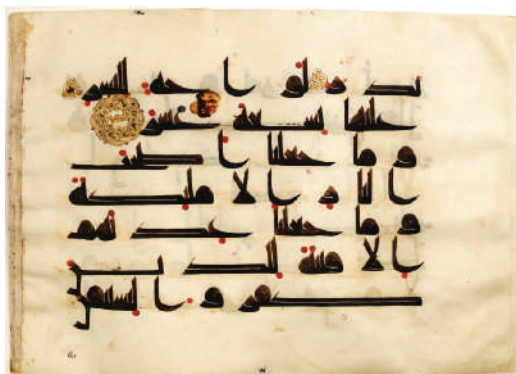 تذر لواحة للبشر
عليها تسعة عشر
وما جعلنا اصحب
النار الا ملئكة
وما جعلنا عدتهم
الا فتنة للذين
كفروا ليستيقن